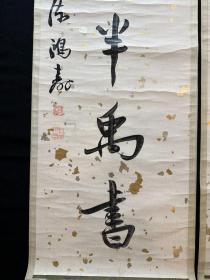 半禹書
陈鴻壽